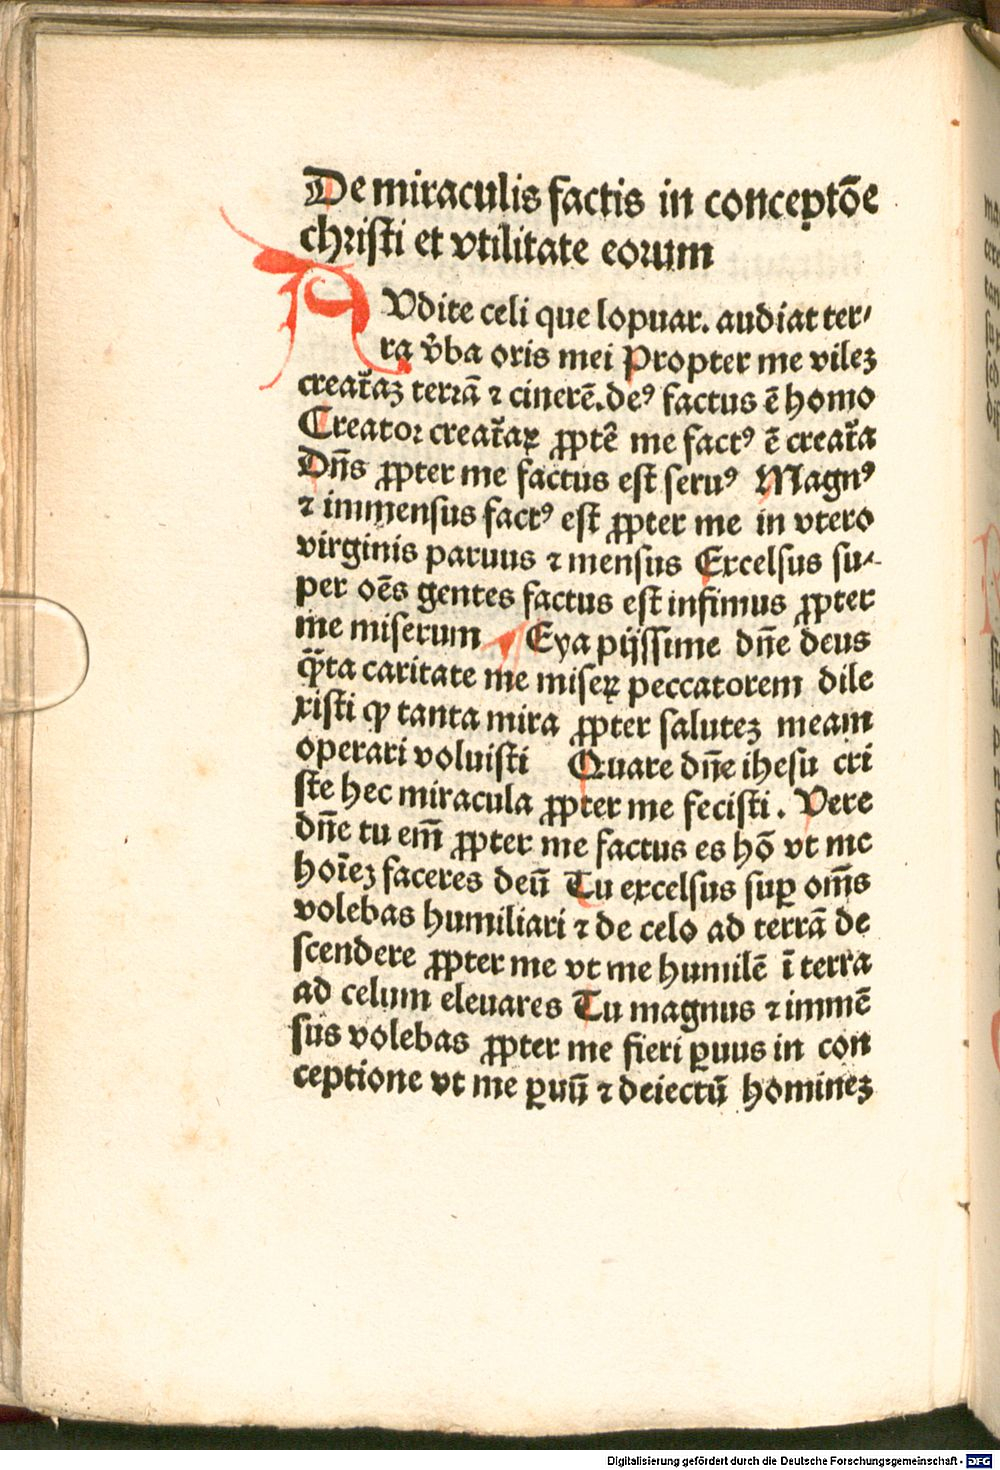 De miraculis factis in conceptōe
christi et vtilitate eorum
AVdite celi que lopuar. audiat ter-
ra v̉ba oris mei Propter me vilez
creat᷑az terrā ⁊ cinerē. deꝰ factus ē homo
Creator creat᷑aꝝ ꝓpt̄e me factꝰ ē creat᷑a
Dn̄s ꝓpter me factus est seruꝰ Magnꝰ
⁊ immensus factꝰ est ꝓpter me in vtero
virginis paruus ⁊ mensus Excelsus su-
per oēs gentes factus est infimus ꝓpter
me miserum Eya pijssime dn̄e deus
qᷓ̃ta caritate me miseꝝ peccatorem dile
xisti ꝙ tanta mira ꝓpter salutez meam
operari voluisti Quare dn̄e ihesu cri
ste hec miracula ꝓpter me fecisti. Vere
dn̄e tu em̄ ꝓpter me factus es hō vt me
hoīez faceres deū Tu excelsus suꝑ om̄s
volebas humiliari ⁊ de celo ad terrā de
scendere ꝓpter me vt me humilē ī terra
ad celum eleuares Tu magnus ⁊ immē
sus volebas ꝓpter me fieri ꝑuus in con
ceptione vt me ꝑuū ⁊ deiectū hominez
Digitalisierung gefördert durch die Deutsche Forschungsgemeinschaft - DFG